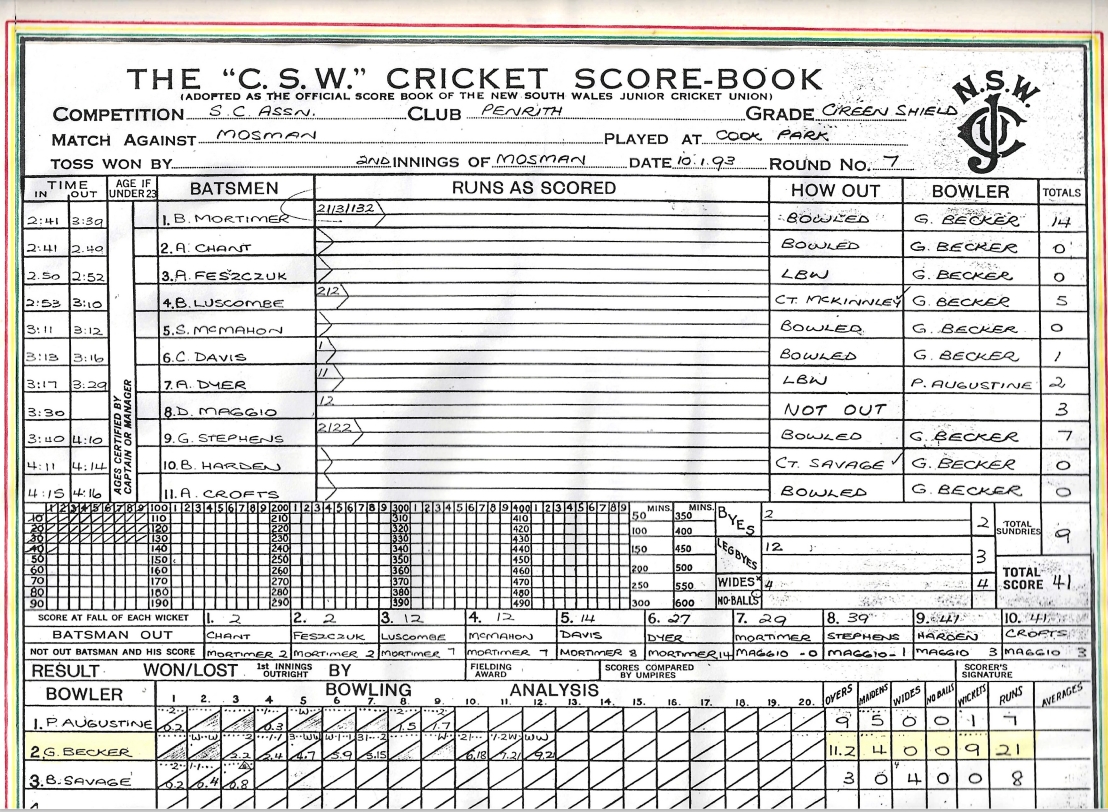 THE "C.S.W." CRICKET SCORE-BOOK
(ADOPTED AS THE OFFICIAL SCORE BOOK OF THE NEW SOUTH WALES JUNIOR CRICKET UNION)
N.S.W.
JCU
COMPETITION S.C. ASSN. CLUB PENRITH GRADE GREEN SHIELD
MATCH AGAINST MOSMAN PLAYED AT COOK PARK
TOSS WON BY 2ND INNINGS OF MOSMAN DATE 10.1.93 ROUND NO. 7
TIME IN OUT AGE IF UNDER 23 BATSMEN RUNS AS SCORED HOW OUT BOWLER TOTALS
2:41 3:39 1. B. MORTIMER 213132 BOWLED G. BECKER 14
2:41 2.49 2. A. CHANT BOWLED G. BECKER 0
2.50 2:52 3. A. FESZCZUK LBW G. BECKER 0
2:53 3:10 4. B. LUSCOMBE 212 CT. MCKINNLEY G. BECKER 5
3:11 3:12 5. S. MCMAHON BOWLED G. BECKER 0
3:13 3:16 6. C. DAVIS 1 BOWLED G. BECKER 1
3:17 3:29 7. A. DYER 11 LBW P. AUGUSTINE 2
3:30 8. D. MAGGIO 12 NOT OUT 3
3:40 4:10 9. G. STEPHENS 2122 BOWLED G. BECKER 7
4:11 4:14 10. B. HARDEN CT. SAVAGE G. BECKER 0
4:15 4:16 11. A. CROFTS BOWLED G. BECKER 0
AGES CERTIFIED BY CAPTAIN OR MANAGER
1 2 3 4 5 6 7 8 9 100 1 2 3 4 5 6 7 8 9 200 1 2 3 4 5 6 7 8 9 300 1 2 3 4 5 6 7 8 9 400 1 2 3 4 5 6 7 8 9 MINS. MINS.
10 110 210 310 410 50 350 BYES 2 2 TOTAL SUNDRIES 9
20 120 220 320 420 100 400
30 130 230 330 430
40 140 240 340 440 150 450 LEG BYES 12 3
50 150 250 350 450
60 160 260 360 460 200 500 TOTAL SCORE 41
70 170 270 370 470 250 550 WIDES 4 4
80 180 280 380 480
90 190 290 390 490 300 600 NO-BALLS
SCORE AT FALL OF EACH WICKET 1. 2 2. 2 3. 12 4. 12 5. 14 6. 27 7. 29 8. 39 9. 41 10. 41
BATSMAN OUT CHANT FESZCZUK LUSCOMBE MCMAHON DAVIS DYER MORTIMER STEPHENS HARDEN CROFTS
NOT OUT BATSMAN AND HIS SCORE MORTIMER 2 MORTIMER 2 MORTIMER 7 MORTIMER 7 MORTIMER 8 MORTIMER 14 MAGGIO -0 MAGGIO-1 MAGGIO 3 MAGGIO 3
RESULT WON/LOST 1st INNINGS OUTRIGHT BY FIELDING AWARD SCORES COMPARED BY UMPIRES SCORER'S SIGNATURE
BOWLER BOWLING ANALYSIS OVERS MAIDENS WIDES NO BALLS WICKETS RUNS AVERAGES
1. 2. 3. 4. 5. 6. 7. 8. 9. 10. 11. 12. 13. 14. 15. 16. 17. 18. 19. 20.
1. P. AUGUSTINE 0.2 0.3 1.5 1.7 9 5 0 0 1 7
2. G. BECKER 2.2 2.4 4.7 5.9 5.15 6.18 7.21 9.21 11.2 4 0 0 9 21
3. B. SAVAGE 0.2 0.4 0.8 3 0 4 0 0 8